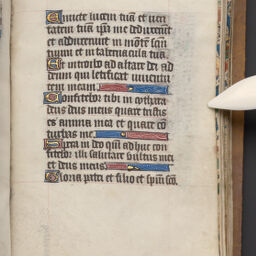 Emitte lucem tuã et veri
tatem tuã ipã me deduxerũt
et adduxerunt in mõtẽ sanc
tuum et in tabernacula tua.
Et introibo ad altare dei ad
deum qui letificat iuventu
tem meam.
Confitebor tibi in cythara
deus deus meus quare tristis
es anima mea et quare cõ
turbas me.
Spera in deo qm̃ adhuc con
fitebor illi salutare vultus mei
et deus meus.
Gloria patri et filio et spirĩ scõ.